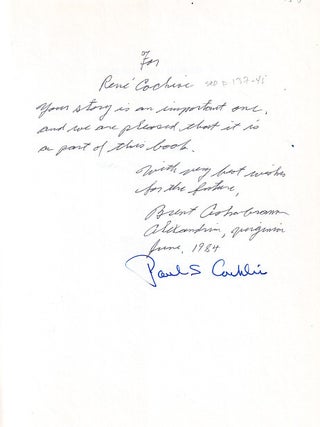 For
René Cochise see p 137-45
Your story is an important one,
and we are pleased that it is
a part of this book.
With very best wishes
for the future,
Brent Ashabranner
Alexandria, Virginia
June, 1984
Paul S Conklin